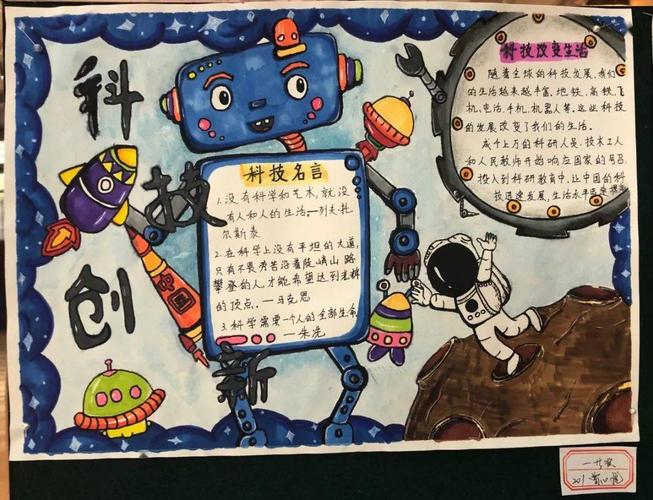 科技创新
中国
科技名言
1.没有科学和艺术,就没
有人和人的生活—列夫·托
尔斯泰
2.在科学上没有平坦的大道,
只有不畏劳苦沿着陡峭山路
攀登的人,才能希望达到光辉
的顶点。—马克思
3.科学需要一个人的全部生命
—朱洗
科技改变生活
随着全球的科技发展,我们
的生活越来越丰富,地铁、高铁、飞
机、电话、手机、机器人等,这些科技
的发展改变了我们的生活。
成千上万的科研人员、技术工人
和人民教师开始响应国家的号召,
投入到科研教育中,让中国的科
技迅速发展,生活水平
一等奖
201